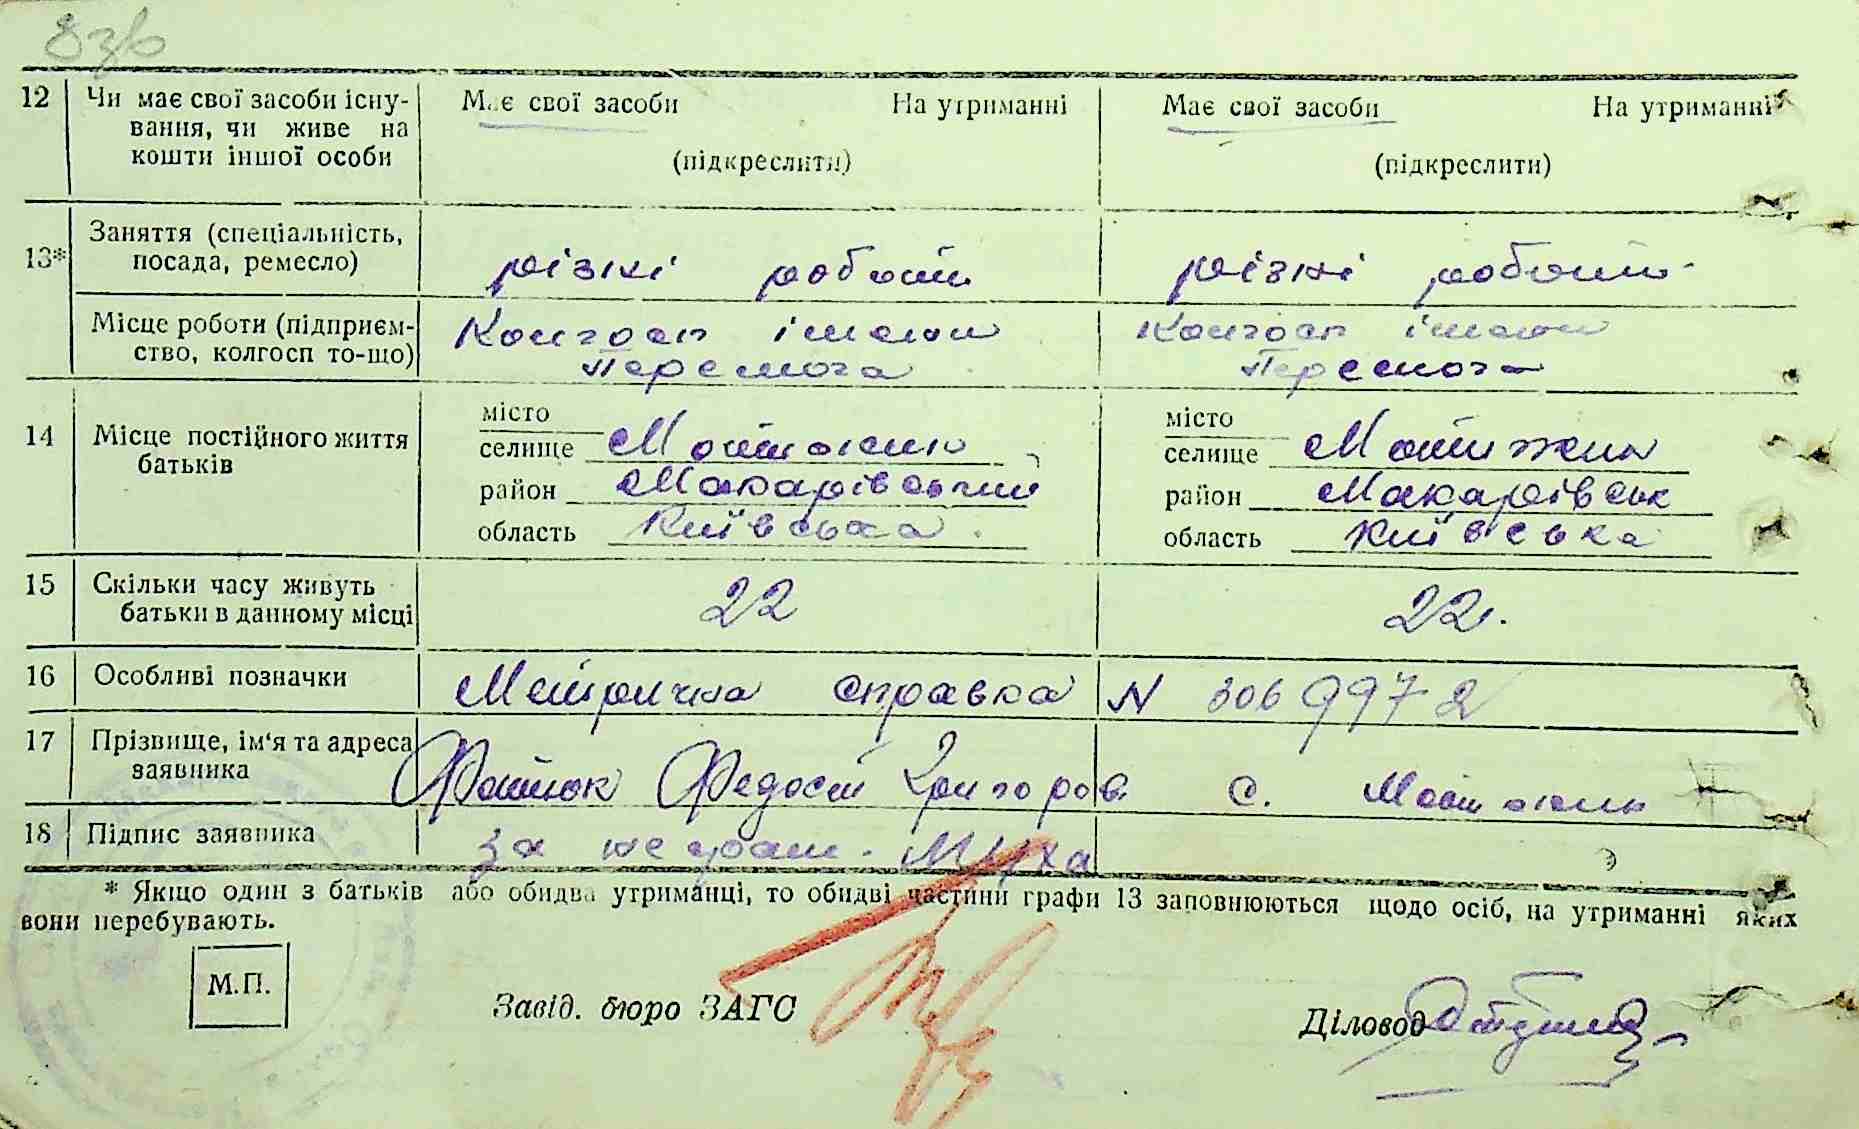 12 Чи має свої засоби існу- Має свої засоби На утриманні Має свої засоби На утриманні
вання, чи живе на
кошти іншої особи (підкреслити) (підкреслити)
13* Заняття (спеціальність,
посада, ремесло) різні роботи різні роботи
Місце роботи (підприєм- Колгосп імени Колгосп імени
ство, колгосп то-що) Перемога Перемога
14 Місце постійного життя місто місто
батьків селище Мотижин селище Мотижин
район Макарівський район Макарівськ
область Київська область Київська
15 Скільки часу живуть
батьки в данному місці 22 22.
16 Особливі позначки Метрична справка N 3069972
17 Прізвище, ім'я та адреса
заявника Федосій Григоров. с. Мотижин
18 Підпис заявника за неграм. Муха
* Якщо один з батьків або обидва утриманці, то обидві частини графи 13 заповнюються щодо осіб, на утриманні яких
вони перебувають.
М.П.
Завід. бюро ЗАГС
Діловод